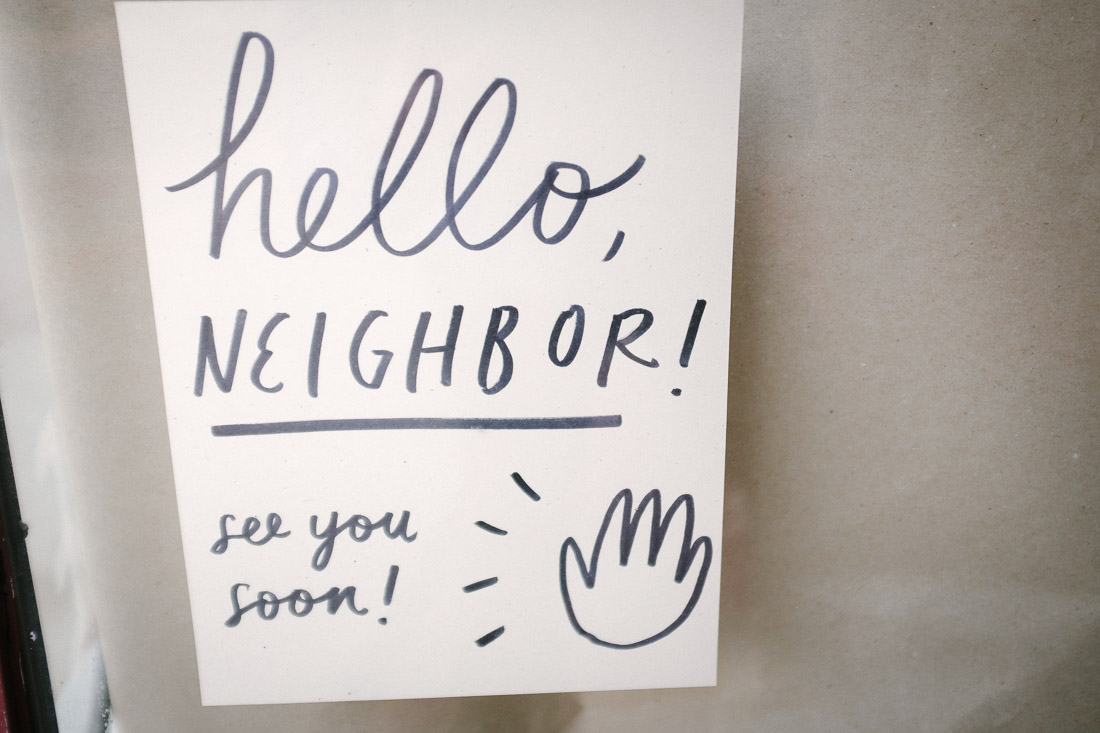 hello,
NEIGHBOR!
see you
soon!